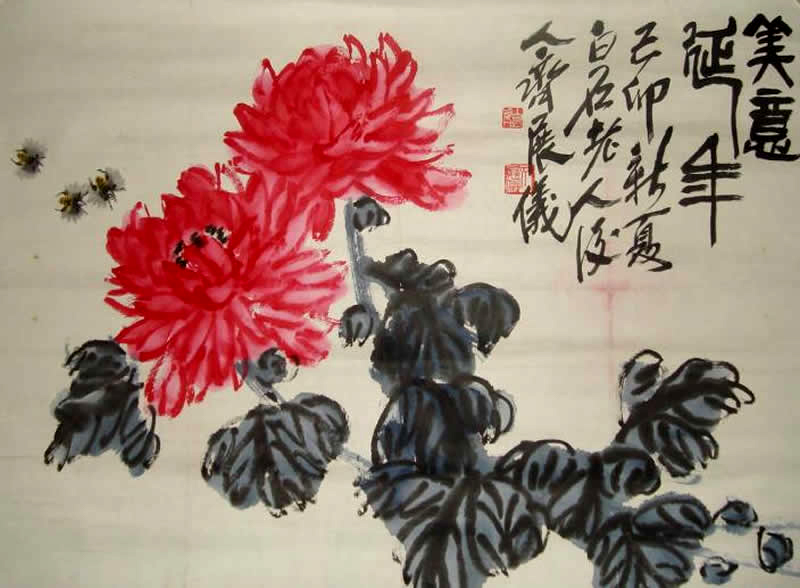 美意
延年
己卯新夏
白石老人後
人齊展儀